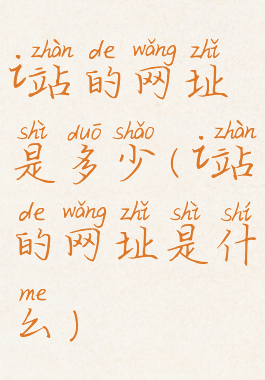 zhàn de wǎng zhǐ
i站的网址
shì duō shǎo zhàn
是多少(i站
de wǎng zhǐ shì shí
的网址是什
me
么)